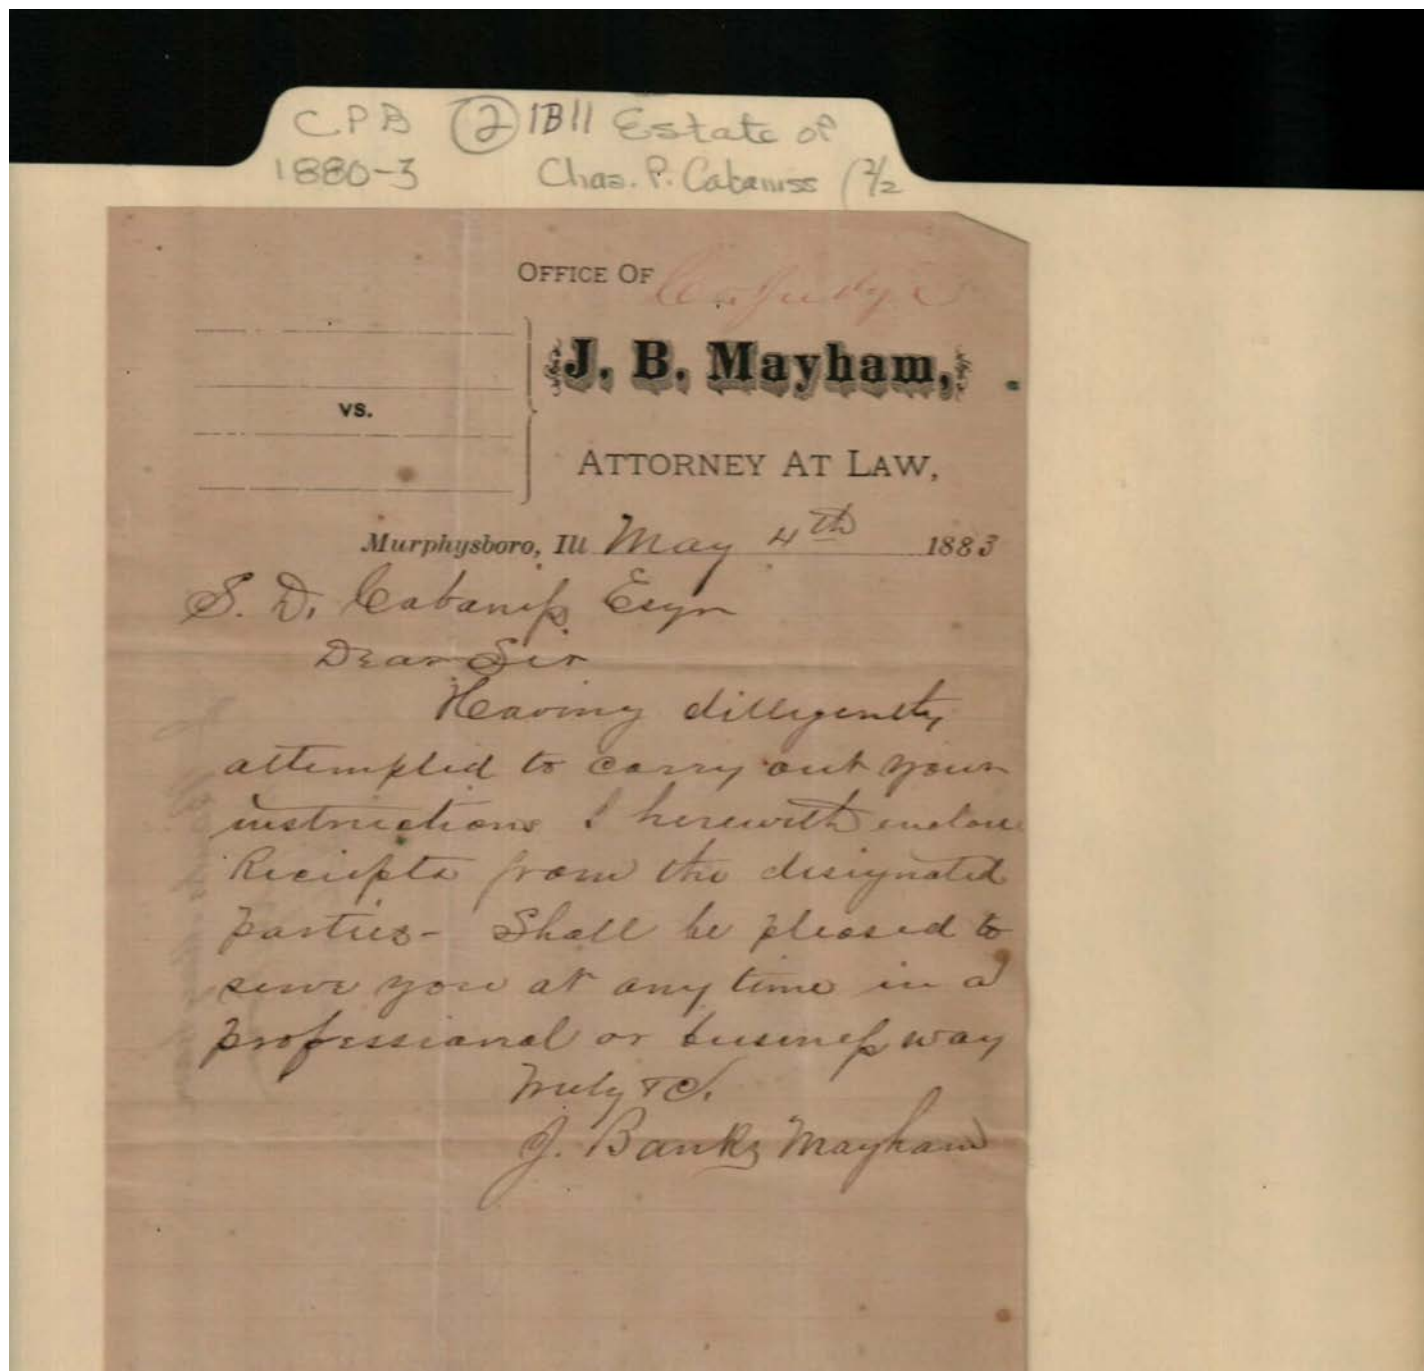 CPB ② 1B11 Estate of
1880-3 Chas. P. Cabaniss (2/2
OFFICE OF Co. Judge
J. B. Mayham,
vs.
ATTORNEY AT LAW,
Murphysboro, Ill May 4th 1883
S. D. Cabaniss Esqr
Dear Sir
Having dilligently
attempted to carry out your
instructions I herewith enclose
Reciepts from the designated
parties - Shall be pleased to
serve you at any time in a
professional or business way
Truly &C.
J. Banks Mayham